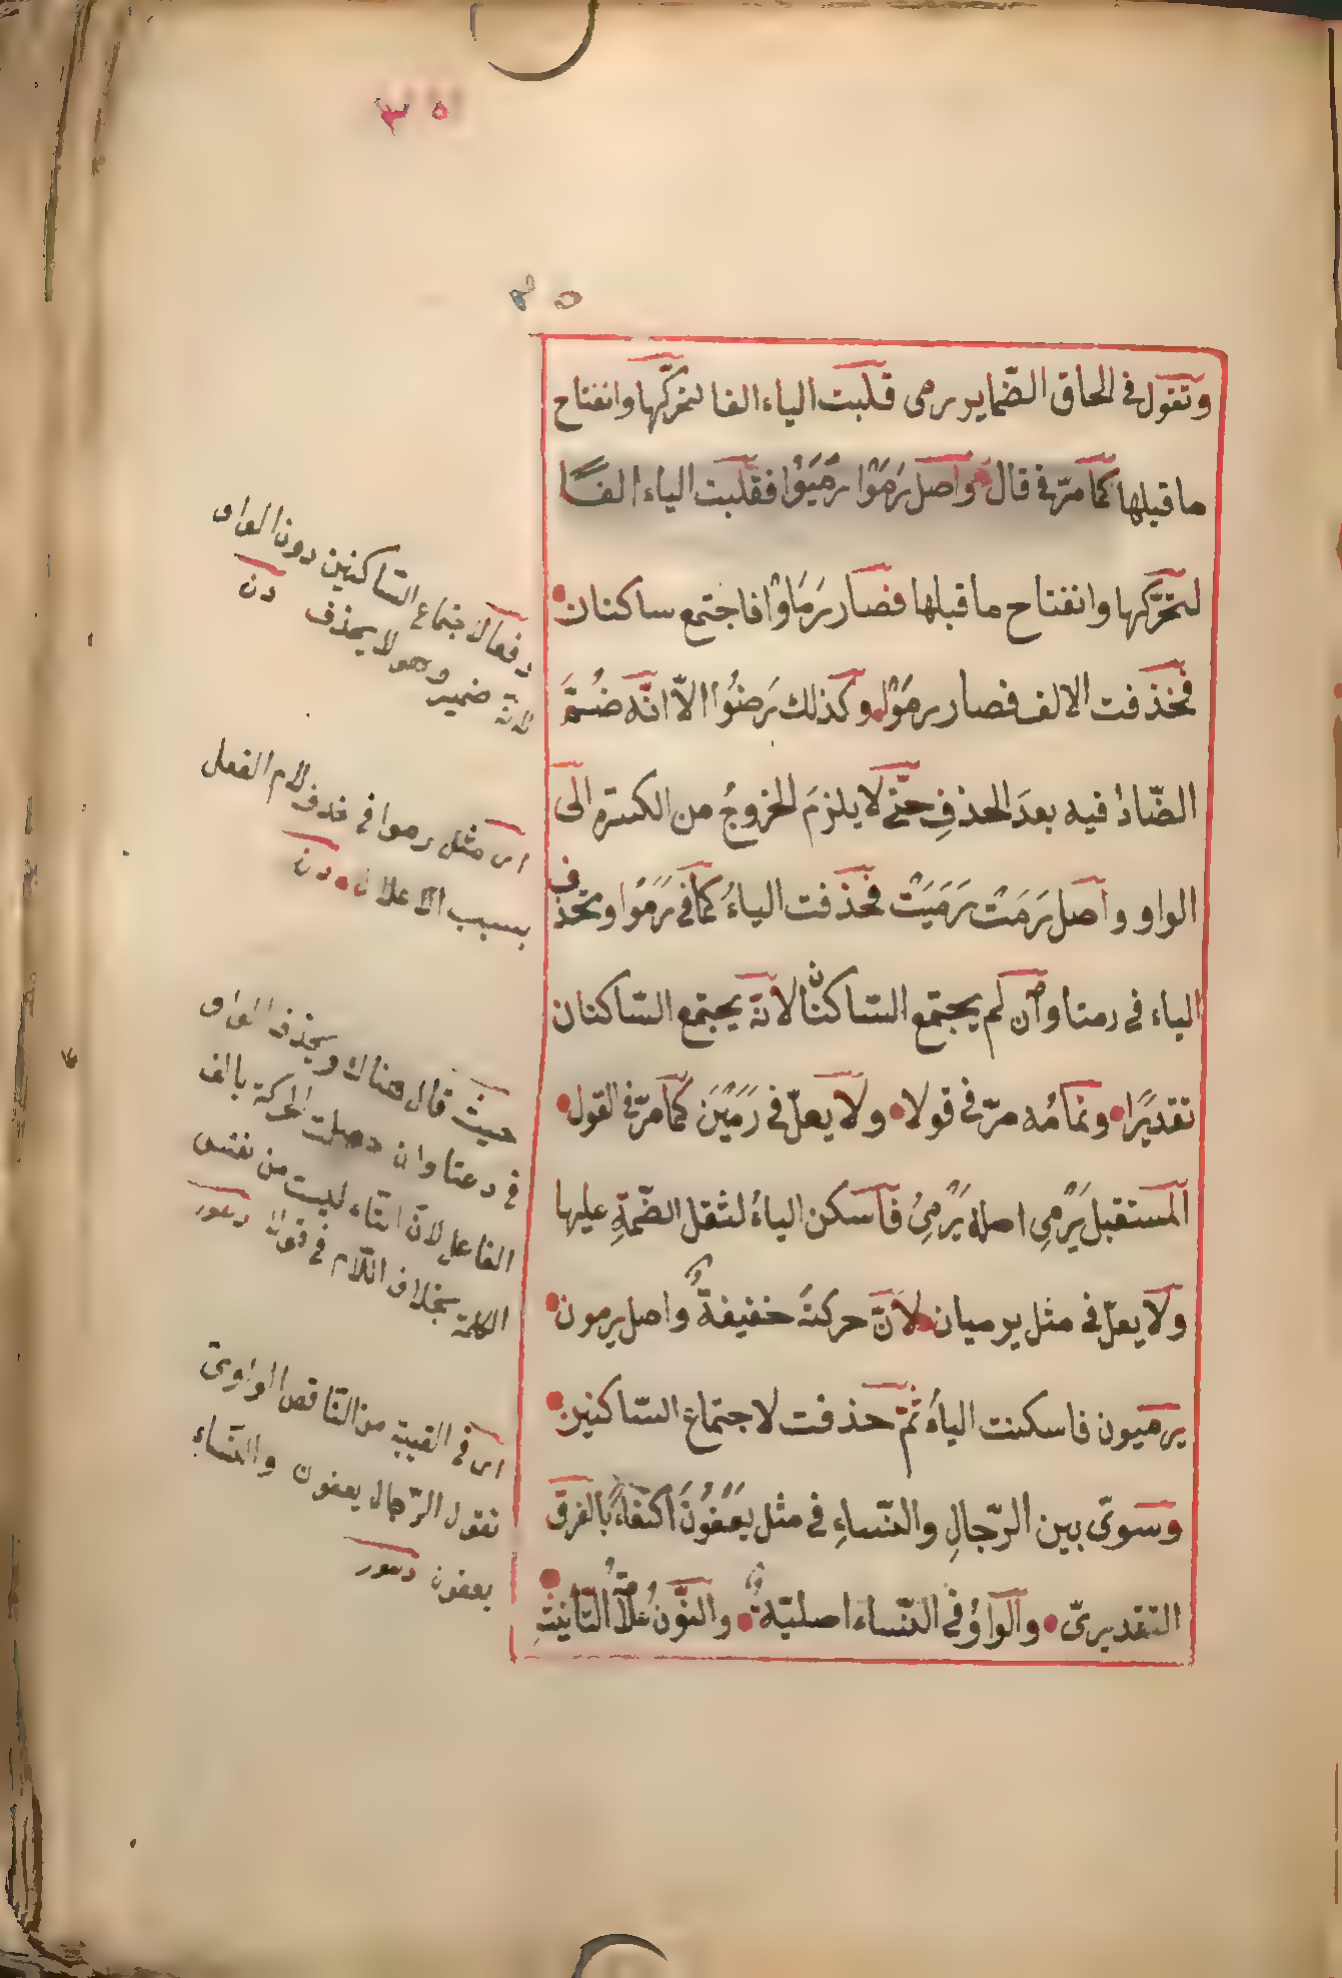 ٣٥
٤٥
وتقول في الحاق الضماير رمى قلبت الياء الفا لتحركها وانفتاح
ما قبلها كما مرّ في قال واصل رَمَوْا رَمَيُوْا فقلبت الياء الفًا
لتحرّكها وانفتاح ما قبلها فصار رَمَاوْا فاجتمع ساكنان
فحذفت الالف فصار رموْا وكذلك رَضُوْا الاّ انّه ضُمَّ
الضّادُ فيه بعدَ الحذفِ حتّى لا يلزمَ الخروجُ من الكسرةِ الى
الواو واصل رَمَتْ رَمَيَتْ فحذفت الياءُ كما في رَمَوْا وتحذف
الياء في رمتا وان لم يجتمع السّاكنان لانّه يجتمع السّاكنان
تقديرًا وتمامُه مرّ في قولا ولا يعلّ في رَمَيْنَ كما مرّ في القول
المستقبل يَرْمِى اصله يَرْمِىُ فاسكن الياءُ لثقل الضّمّةِ عليها
ولا يعلّ في مثل يرميان لانّ حركتهُ خفيفةٌ واصل يرمون
يرميون فاسكنت الياءُ ثمّ حذفت لاجتماع السّاكنين
وسوّى بين الرّجالِ والنّساءِ في مثل يَعْفُوْنَ اكتفاءً بالفرق
التقديرىّ والواوُ في النّساء اصليّةٌ والنّون علامةُ التّأنيثِ
دفعا لاجتماع السّاكنين دون الواو
لانّه ضمير وهو لا يحذف دن
اى مثل رموا في حذف لام الفعل
بسبب الاعلال دن
حيث قال هناك ويحذف الواو
في دعتا وان حصلت الحركة بالف
الفاعل لان التّاء ليست من نفس
الكلمة بخلاف اللّام في قولا
اى في الغيبة من النّاقص الواوىّ
تقول الرّجال يعفون والنّساء
يعفون